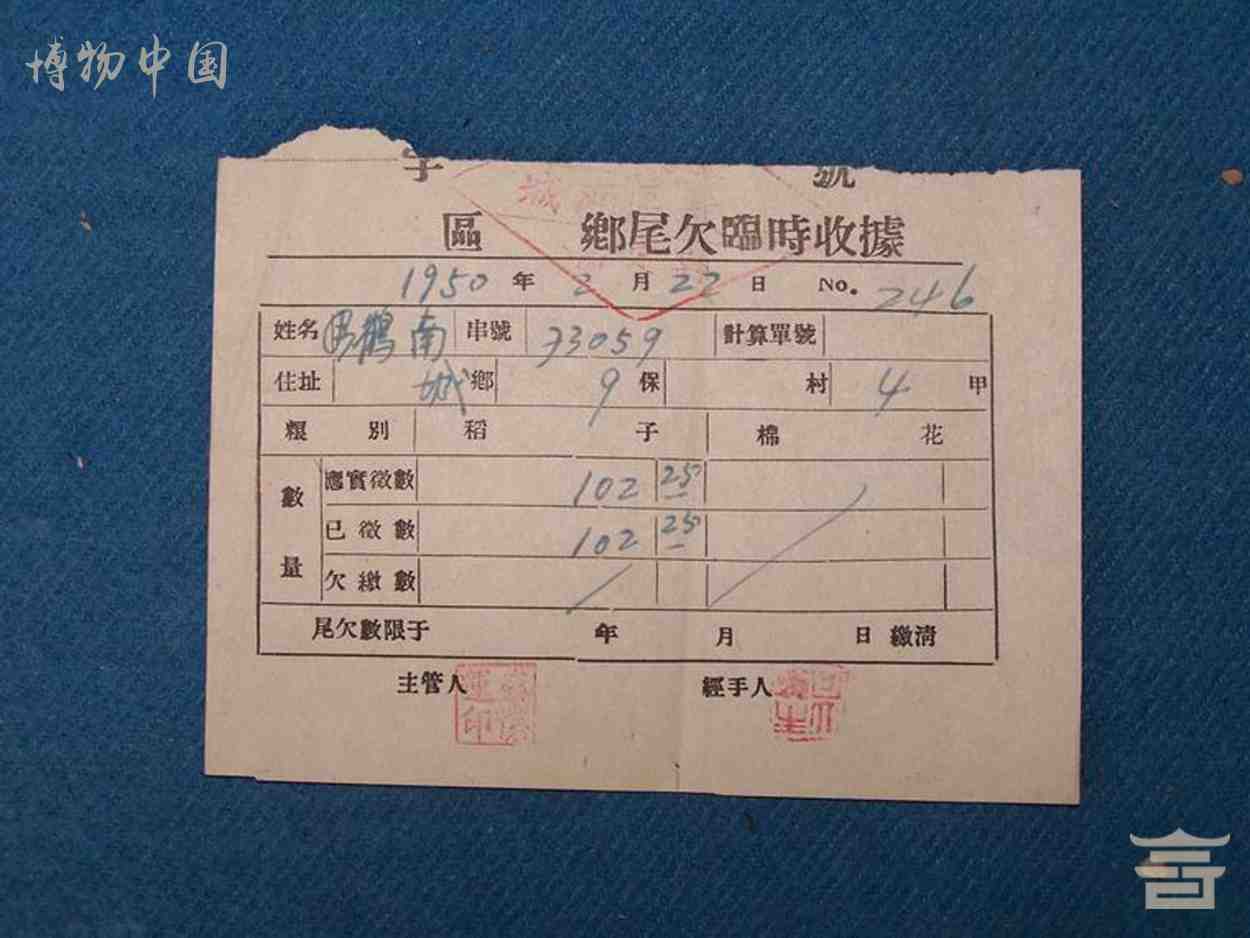 博物中国
字 號
區 鄉尾欠臨時收據
1950 年 2 月 22 日 No. 246
姓名 鶴南 串號 33059 計算單號
住址 城 鄉 9 保 村 4 甲
糧別 稻子 棉花
數量
應實徵數 102 25
已徵數 102 25
欠繳數
尾欠數限于 年 月 日 繳清
主管人 經手人
印